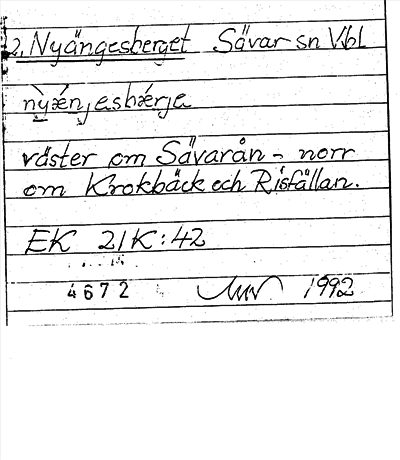 2. Nyängesberget Sävar sn Vbl
nỳæ̀njesbǽrje
väster om Sävarån - norr
om Krokbäck och Risfällan.
EK 21K:42
4672 1992